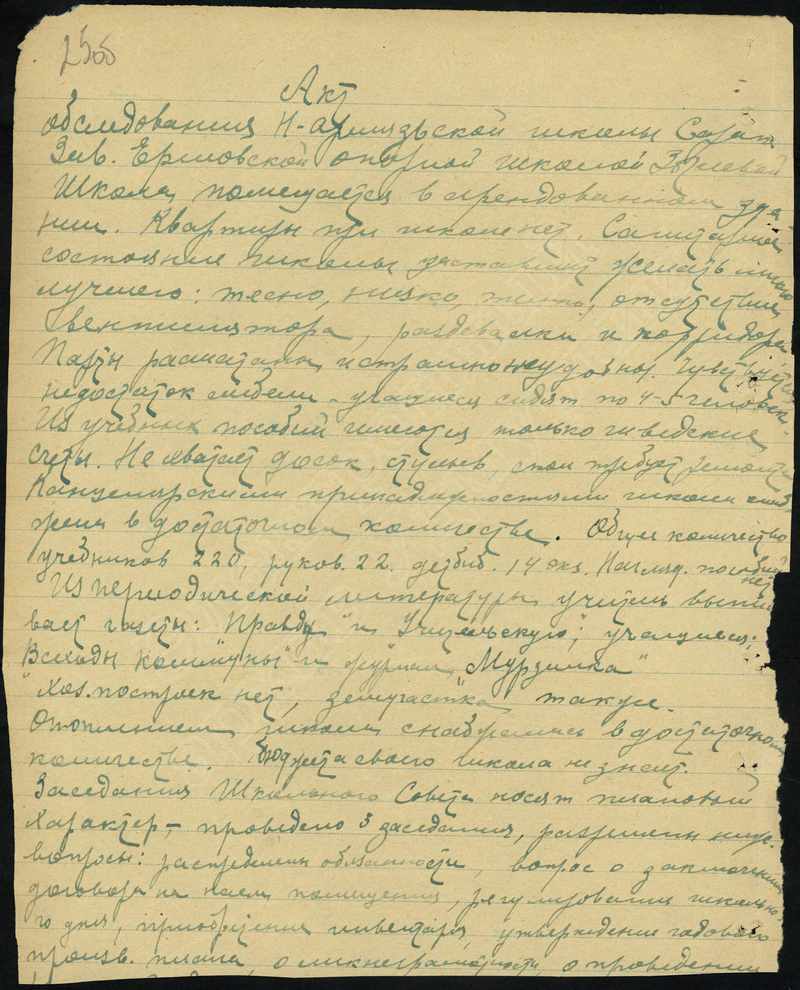 255
Акт
обследования Н-Армязьской школы Сарап.
Зав. Ершовской опорной школой
Школа помещается в арендованном зда
нии. Квартиры при школе нет. Санитарное
состояние школы заставляет желать много
лучшего: тесно, низко, отсутствие
вентилятора, раздевалки и корридора
Парты расшатаны и страшно неудобны. Чувствуется
недостаток мебели - учащиеся сидят по 4-5 человек.
Из учебных пособий имеются только шведские
счеты. Не хватает досок, стульев, требует ремонта
Канцелярскими принадлежностями школа снаб
жена в достаточном количестве. Общее количество
учебников 220, руков. 22. детбиб. 14 экз. Нагляд. пособий
нет
Из периодической литературы учитель выпи
вает газеты: Правду" и Учительскую"; учащиеся:
Всходы Коммуны" и журнал "Мурзилка"
"Хоз. построек нет, земучастка также.
Отоплением школа снабжалась в достаточном
количестве. Бюджета своего школа не знает.
Заседания Школьного Совета носят плановый
характер, - проведено 3 заседания, разрешены
вопросы: распределены обязанности, вопрос о заключении
договора на наем помещения, регулирования школьно
го дня, приобретения инвентаря, утверждение годового
произв. плана, о ликнеграмотности, о проведении